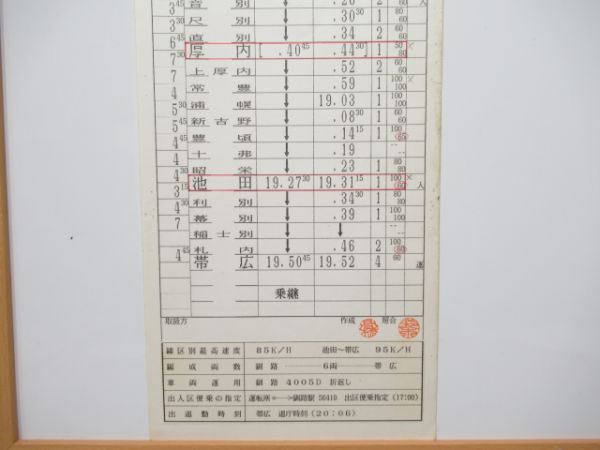 3 45 音別 ↓ .26 2 60 入
3 30 尺別 ↓ .30 30 1 80 60
6 直別 ↓ .34 2 60
7 30 厚内 [ .40 45 .44 30 ] 1 50 80 ×
7 上厚内 ↓ .52 2 60
4 常豊 ↓ .59 1 100
5 30 浦幌 ↓ 19.03 1 100
5 45 新吉野 ↓ .08 30 1 60
4 45 豊頃 ↓ .14 15 1 100 65
4 十弗 ↓ .19
4 30 昭栄 ↓ .23 1 80 80
3 15 池田 19.27 30 19.31 15 1 100 60 × 入
4 30 利別 ↓ .34 30 1 80
7 幕別 ↓ .39 1 100 100
稲士別 ↓ ↓
4 45 札内 ↓ .46 2 100 60
帯広 19.50 45 19.52 4 60 運
乗継
取扱方 作成 照合
線区別最高速度 85K/H 池田〜帯広 95K/H
編成両数 釧路 6両 帯広
車両運用 釧路 4005D 折返し
出入区便乗の指定 運転所←→釧路駅 5641D 出区便乗指定(17:00)
出退勤時刻 帯広 退庁時刻(20:06)